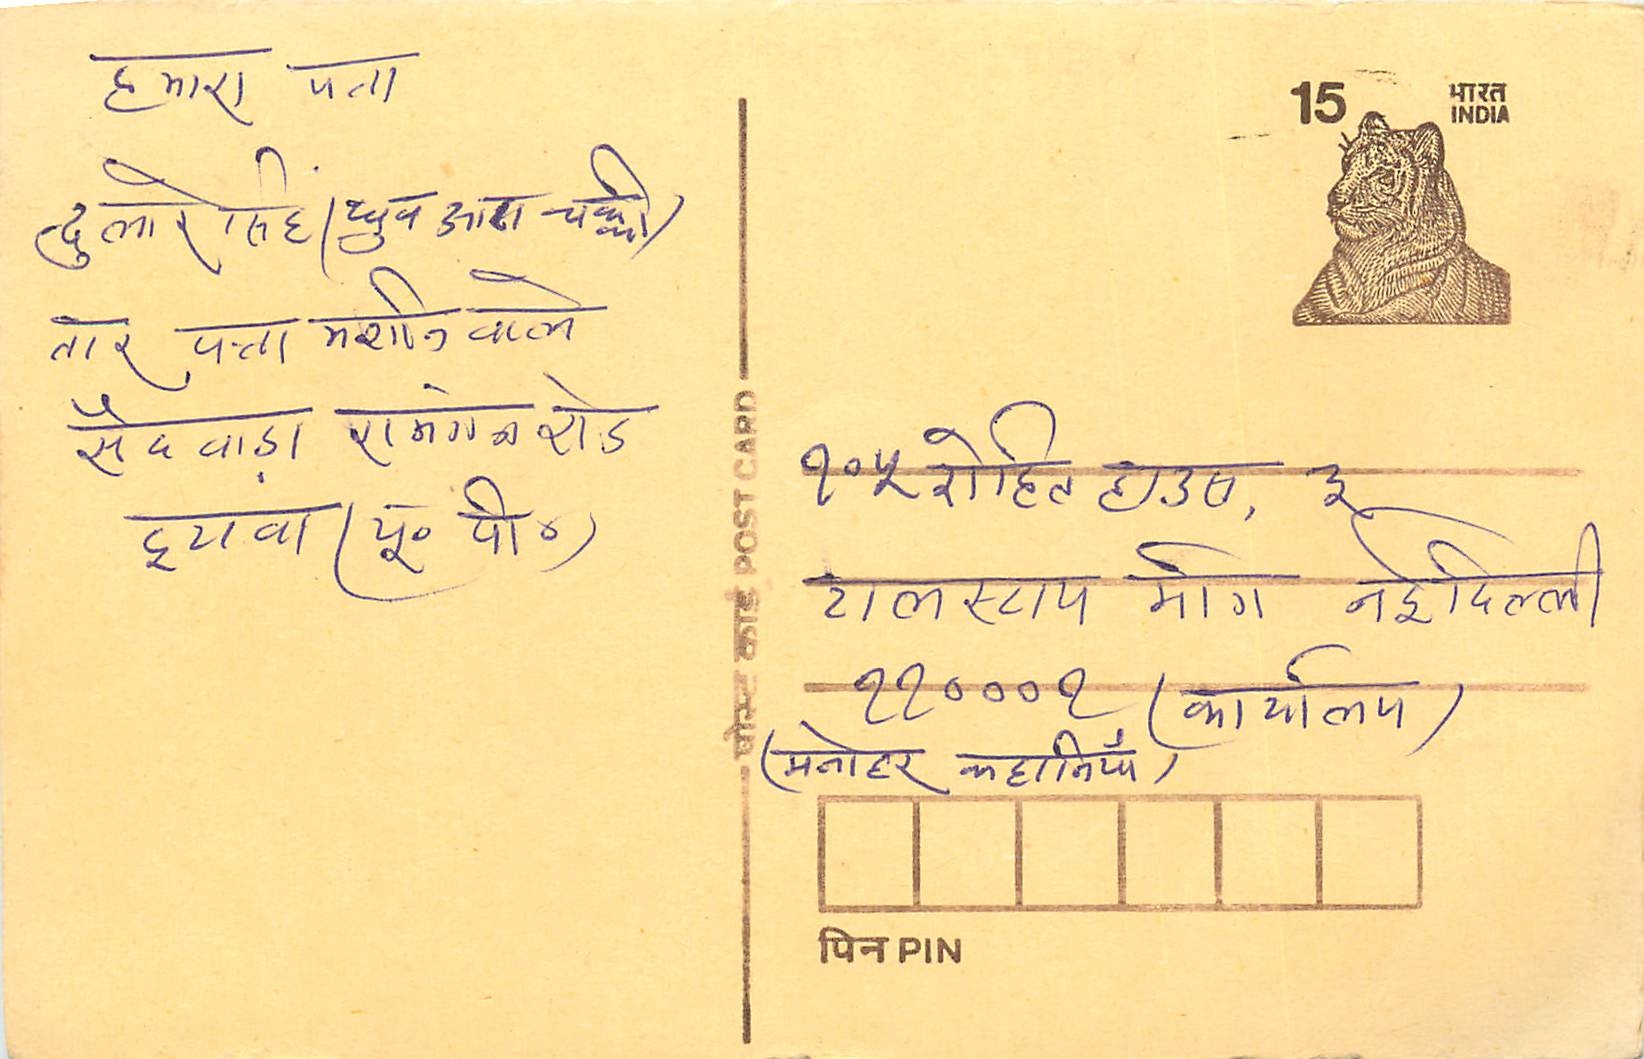 हमारा पता
दुलारे सिंह (ध्रुव आटा चक्की)
तार पत्ता मशीन वाले
सैदवाड़ा रामगंज रोड
इटावा (यू० पी०)
15 भारत
INDIA
पोस्ट कार्ड POST CARD
१०५ रोहित हाउस, ३
टालस्टाय मार्ग नई दिल्ली
११०००१ (कार्यालय)
(मनोहर कहानियाँ)
पिन PIN